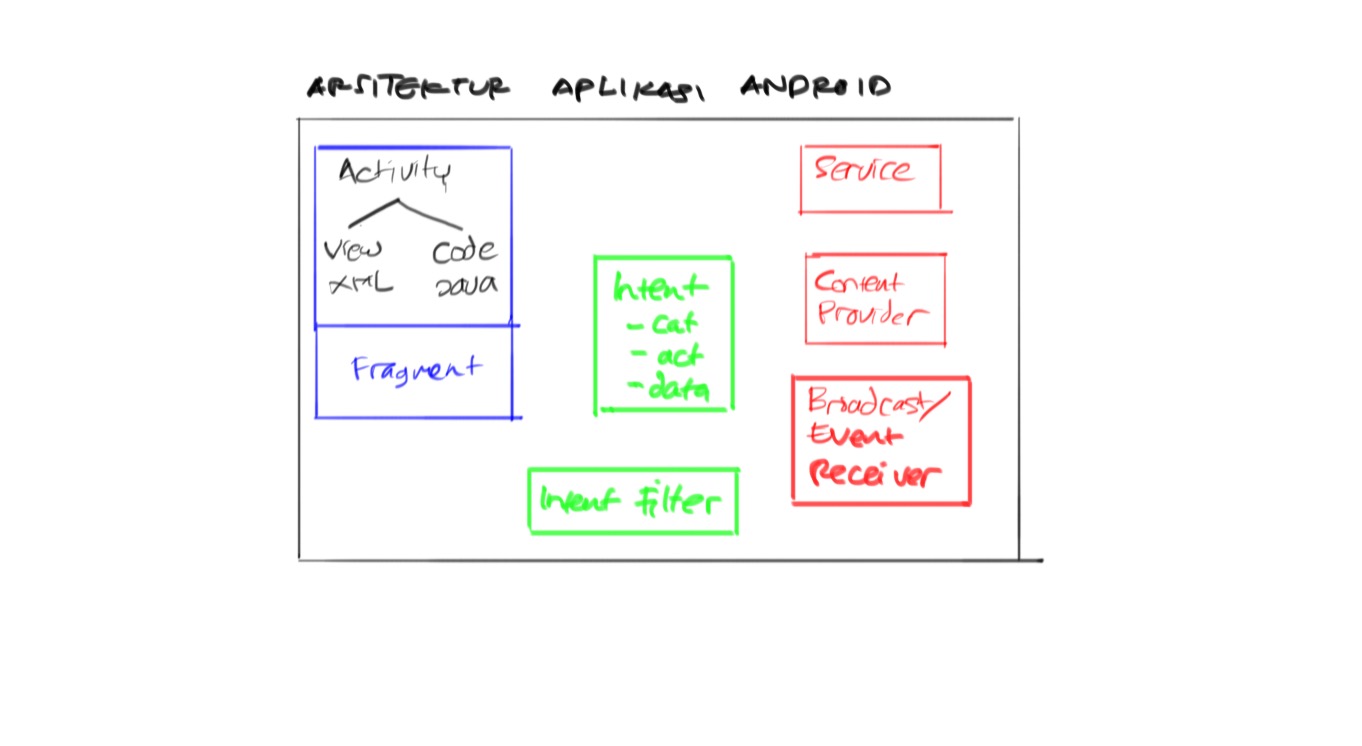 ARSITEKTUR APLIKASI ANDROID
Activity
View Code
XML Java
Fragment
Intent
- cat
- act
- data
Intent Filter
Service
Content
Provider
Broadcast/
Event
Receiver